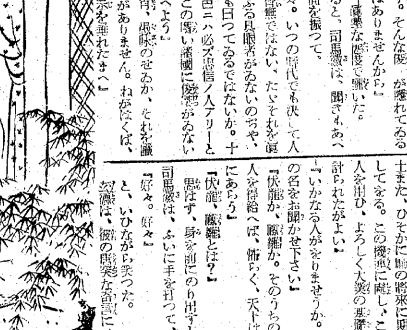 。そんな
はありませんから』
な態度で訊いた。
ると、司馬徽は、聞きもあへ
面を振つて。
。いつの時代でも決して人
無ではない。たゞそれを眞
ふる具眼者がゐないのぢや、
も曰つてゐるではないか。十
邑ニハ必ズ忠信ノ人アリーと
この廣い諸國に俊傑がゐない
へよう』
愚昧のせゐか、それを識
がありません。ねがはくば、
示を垂れたまへ』
士また、ひそかに
してをる。この
人を用ひ、よろしく大業の基礎
計られたがよい』
『いかなる人がをりませうか。
の名をお聞かせ下さい』
『伏龍か、鳳雛か。そのうちの
人を得給へば、怖らく、天下は
にあらう』
『伏龍、鳳雛とは？』
思はず、身を前にのり出すと
司馬徽は、ふいに手を打つて、
『好々。好々』
と、いひながら笑つた。
玄德は、彼の唐突な奇言に、